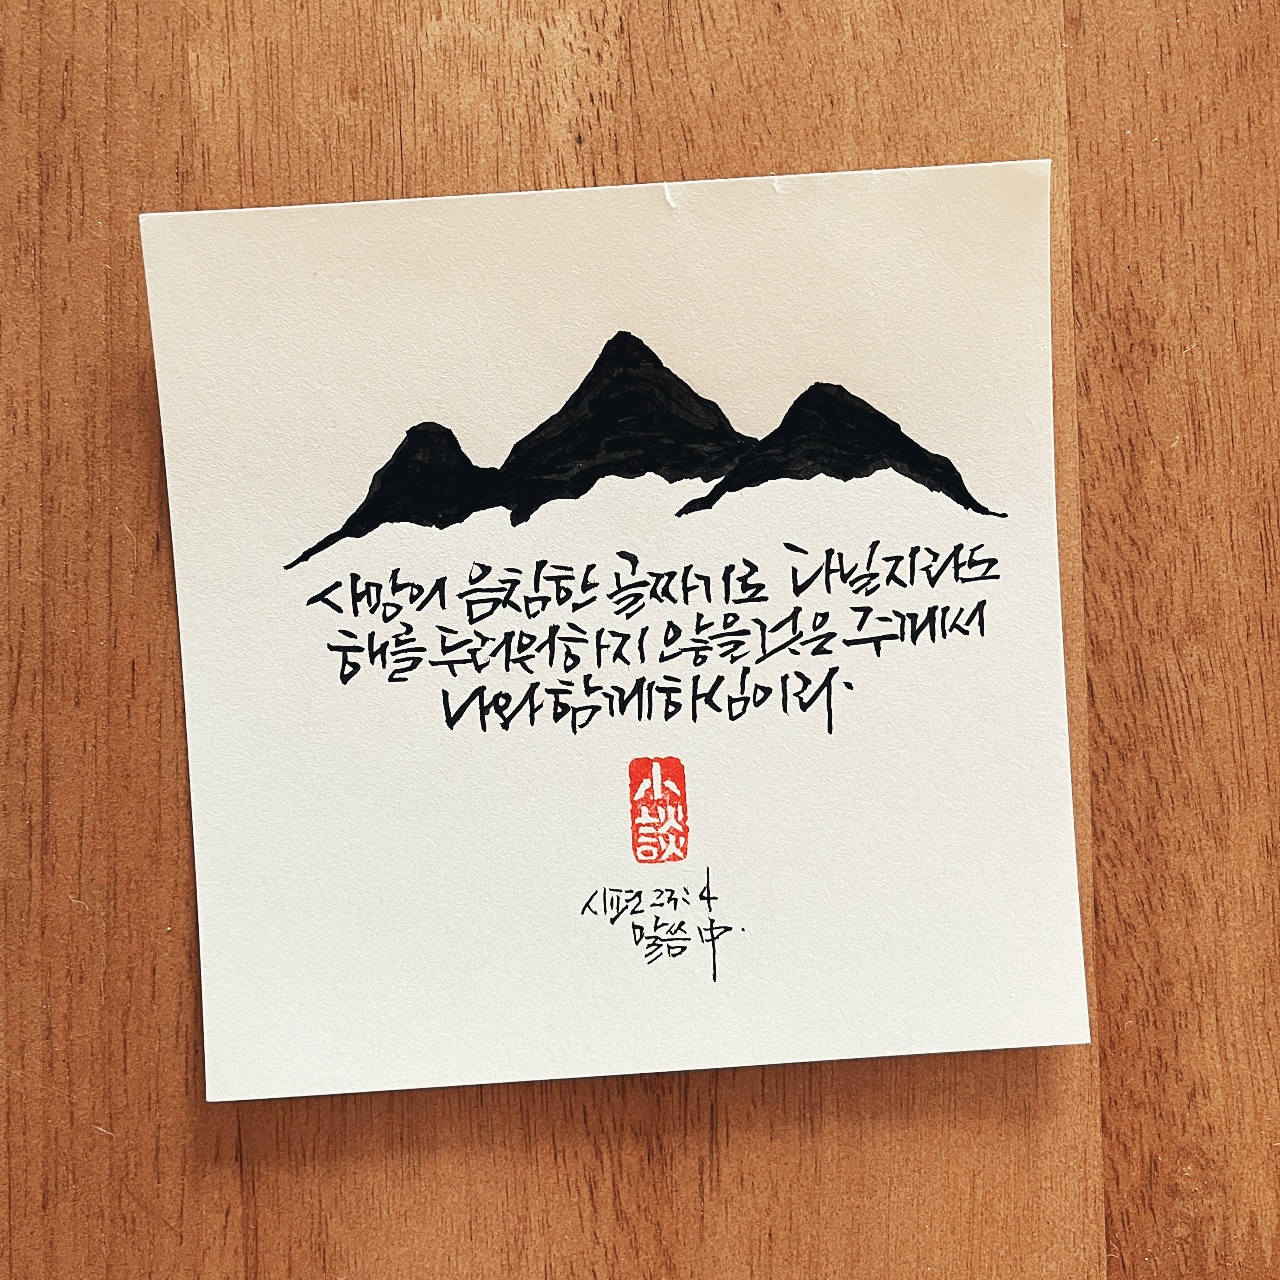 사망의 음침한 골짜기로 다닐지라도
해를 두려워하지 않을것은 주께서
나와 함께하심이라.
小談
시편 23:4
말씀 中.